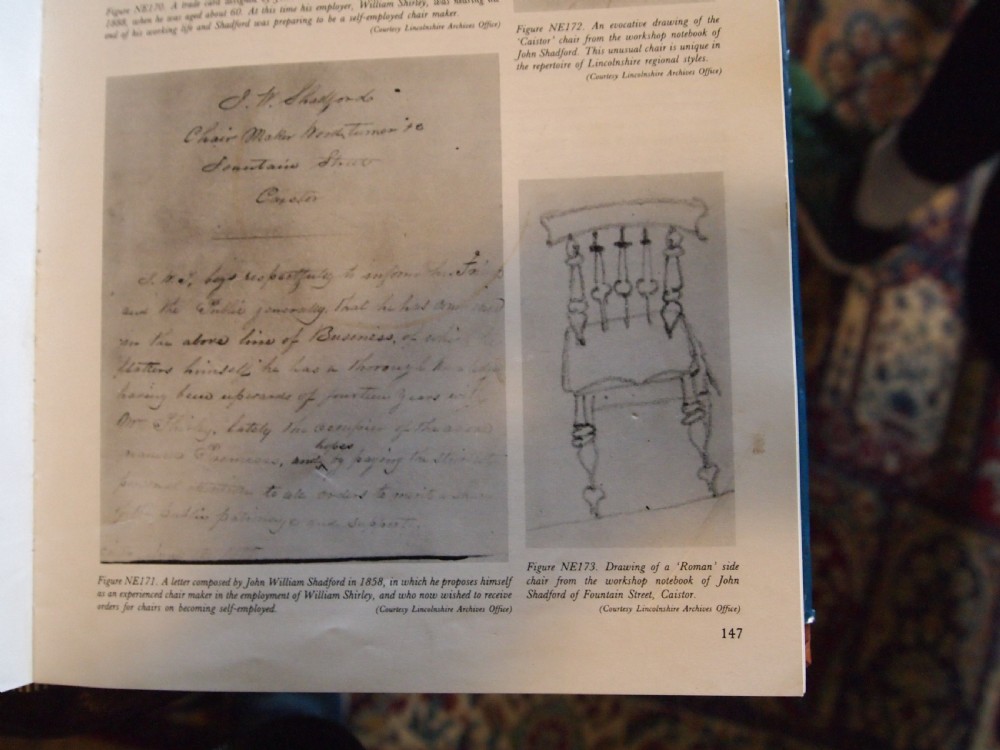 Figure NE170. A trade card designed by
1888, when he was aged about 60. At this time his employer, William Shirley, was nearing the
end of his working life and Shadford was preparing to be a self-employed chair maker.
(Courtesy Lincolnshire Archives Office)
Figure NE172. An evocative drawing of the
'Caistor' chair from the workshop notebook of
John Shadford. This unusual chair is unique in
the repertoire of Lincolnshire regional styles.
(Courtesy Lincolnshire Archives Office)
J. W. Shadford
Chair Maker Wood turner &c
Fountain Street
Caistor
J. W. S. begs respectfully to inform his
and the Public generally, that he has
on the above line of Business, of
flatters himself he has a thorough
having been upwards of fourteen years
Mr Shirley, lately the occupier of the
Premises, and hopes by paying the
to all orders to merit a
public patronage and support.
Figure NE171. A letter composed by John William Shadford in 1858, in which he proposes himself
as an experienced chair maker in the employment of William Shirley, and who now wished to receive
orders for chairs on becoming self-employed.
(Courtesy Lincolnshire Archives Office)
Figure NE173. Drawing of a 'Roman' side
chair from the workshop notebook of John
Shadford of Fountain Street, Caistor.
(Courtesy Lincolnshire Archives Office)
147